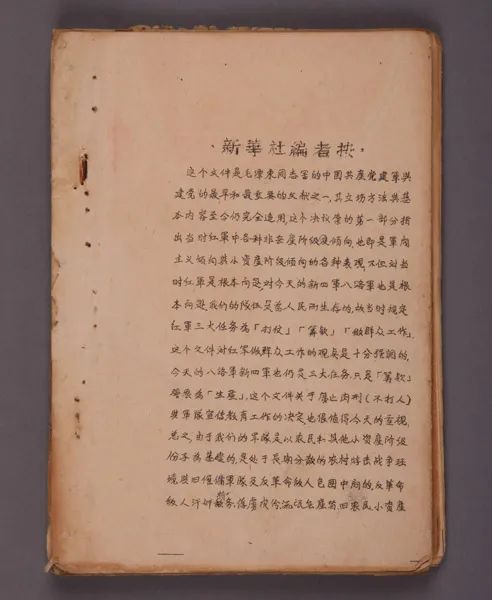 新華社編者按：
這个文件是毛澤東同志写的中国共產党建軍與
建党的最早和最重要的文献之一，其立坊方法與基
本内容至今仍完全适用，这个决议案的第一部分指
出当时红軍中各种非無產阶级底傾向，也即是軍閥
主义傾向與小資產阶级傾向的各种表現，不但对当
时红軍是根本问題，对今天的新四軍八路軍也是根
本问題，我们的隊伍是為人民而生存的，故当时规定
红軍三大任务為「打仗」「筹款」「做群众工作」，
这个文件对红軍做群众工作的观点是十分强調的，
今天的八路軍新四軍也仍是三大任务，只是「筹款」
發展為「生產」，这个文件关于廢止肉刑（不打人）
與軍隊宣傳教育工作的决定，也很值得今天的重視，
总之，由于我们的軍隊是以农民和其他小資產阶级
份子為基礎的，是处于長期分散的农村游击战争环
境與日偽軍隊及反革命敌人包围中间的，反革命
敌人
農民，小資產